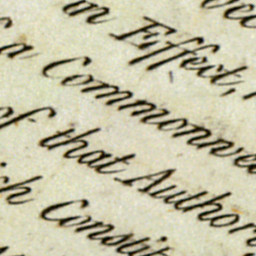 an Effect,
a Commonwe
of that Author
ch Constit